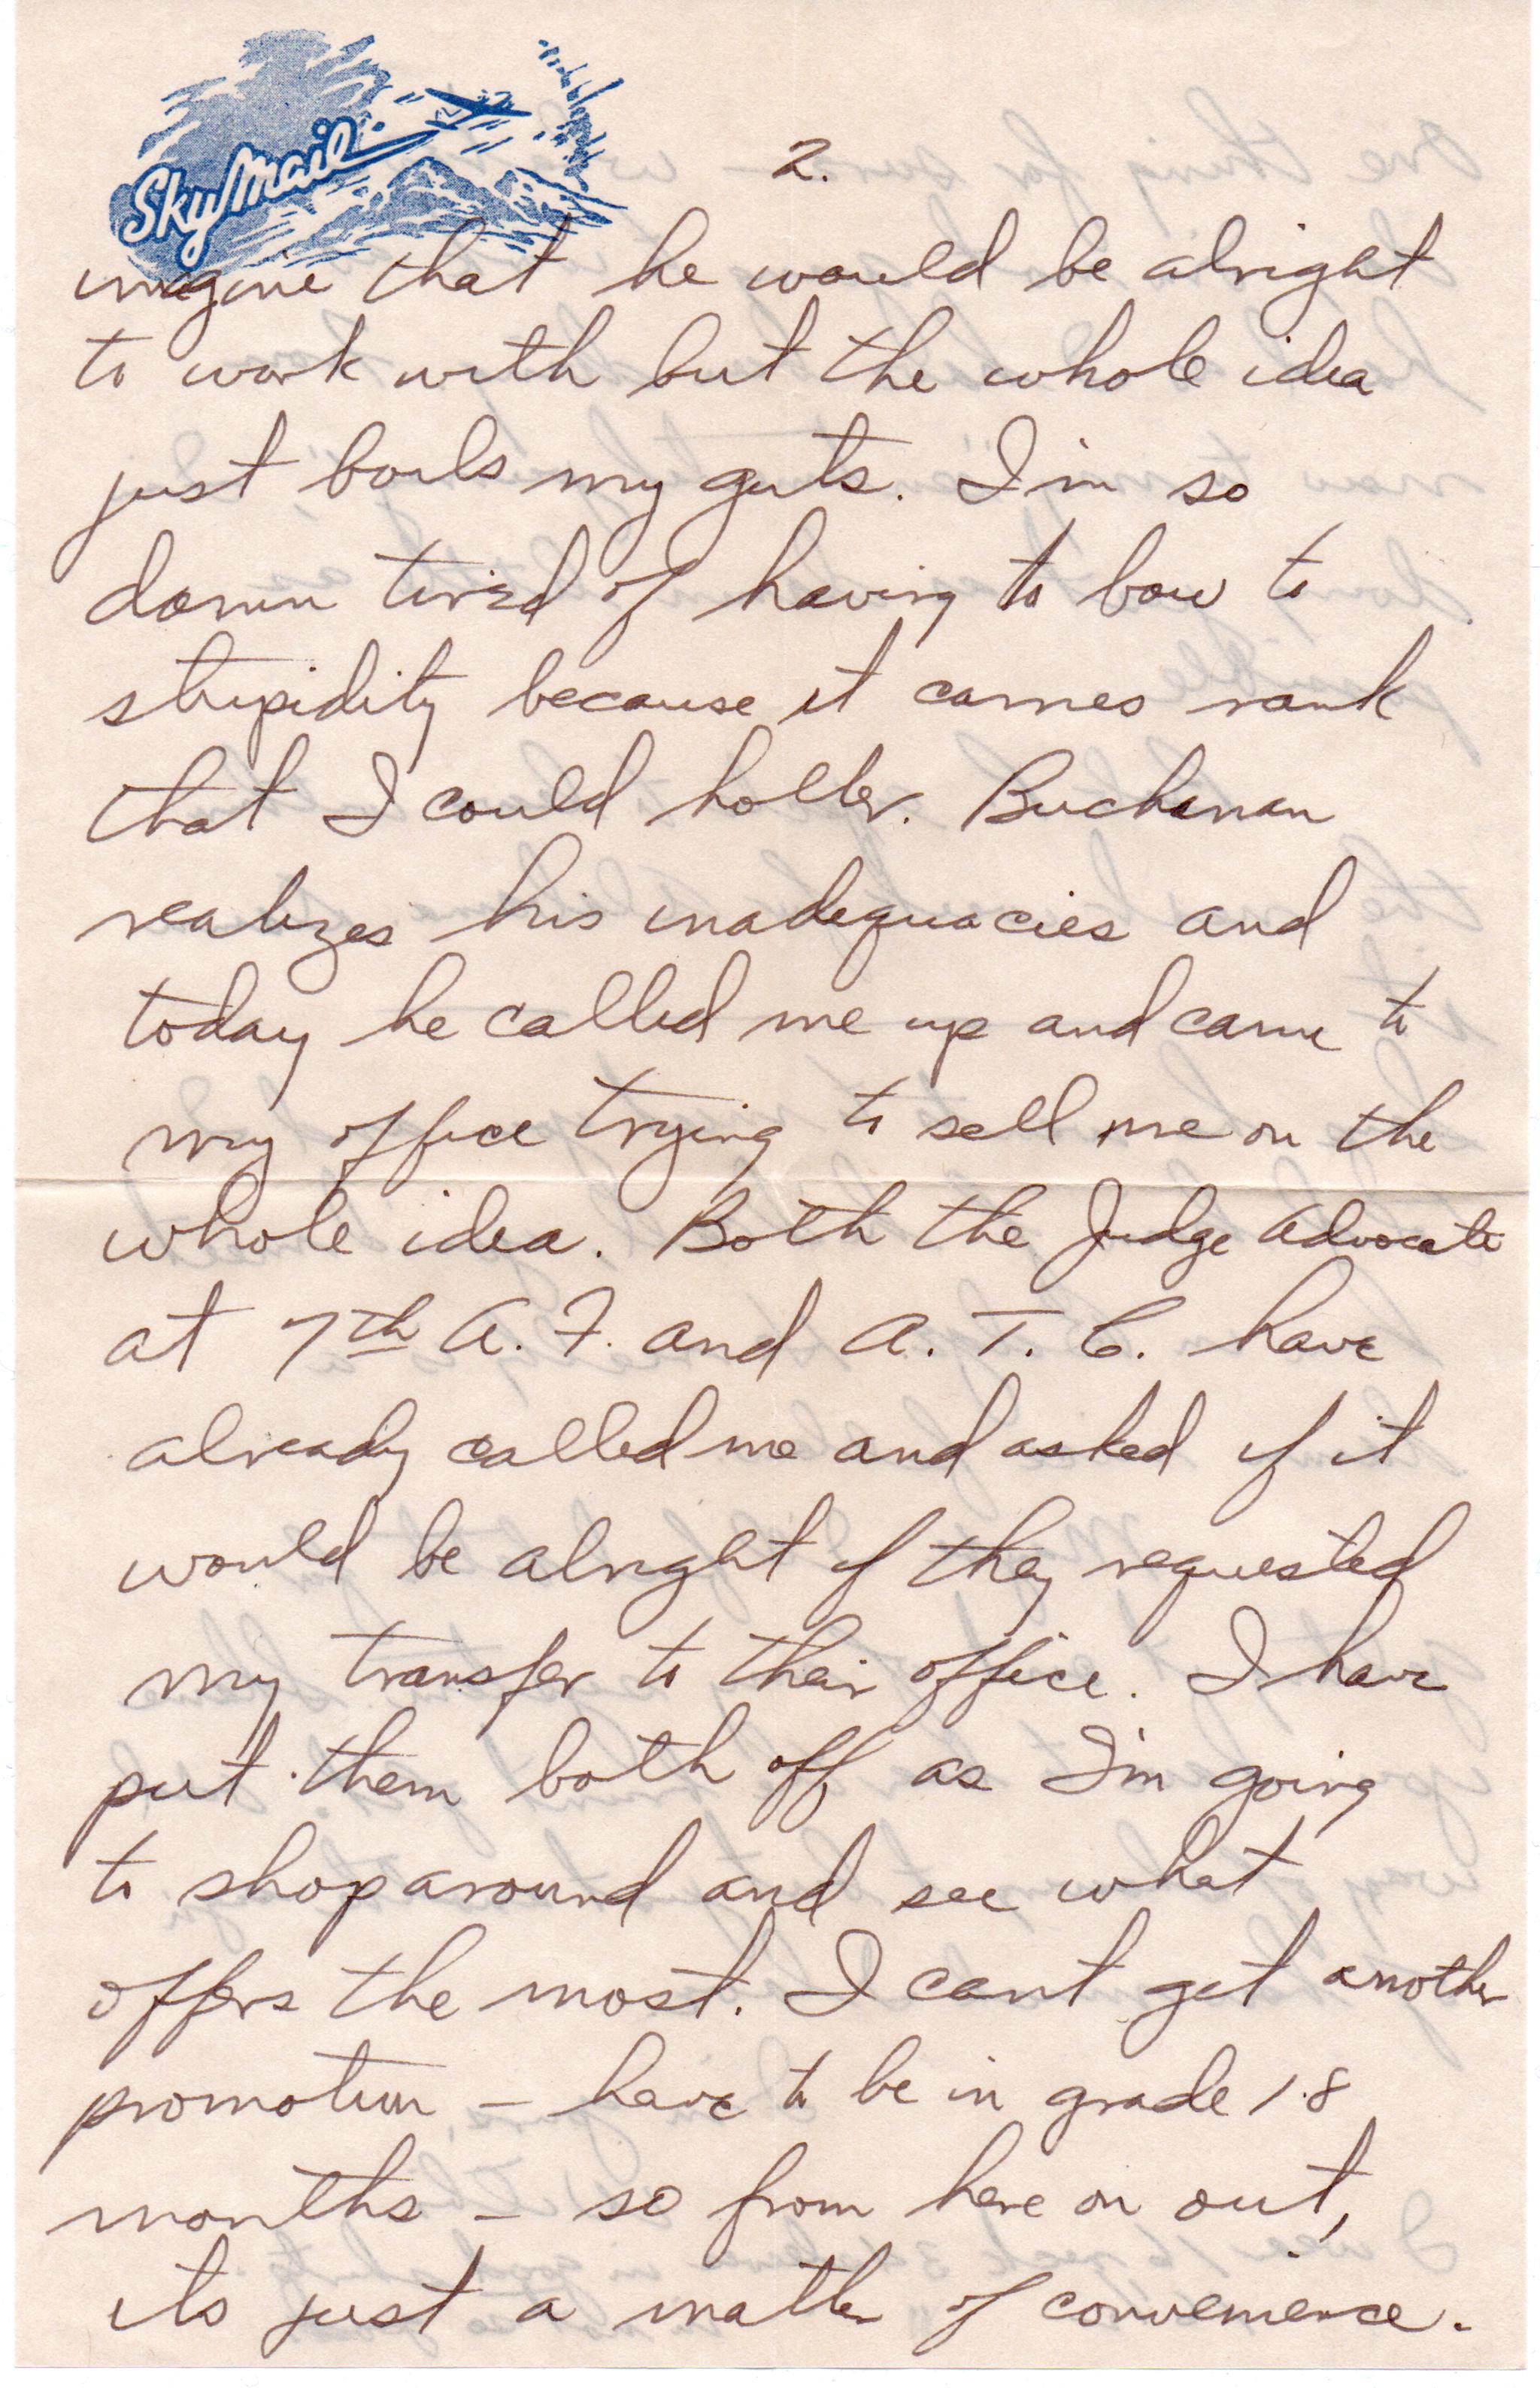 SkyMail
2.
imagine that he would be alright
to work with but the whole idea
just boils my guts. I'm so
damn tired of having to bow to
stupidity because it carries rank
that I could holler. Buchanan
realizes his inadequacies and
today he called me up and came to
my office trying to sell me on the
whole idea. Both the Judge Advocate
at 7th A.F. and A.T.C. have
already called me and asked if it
would be alright if they requested
my transfer to their office. I have
put them both off as I'm going
to shop around and see what
offers the most. I can't get another
promotion - have to be in grade 18
months - so from here on out,
its just a matter of convenience.